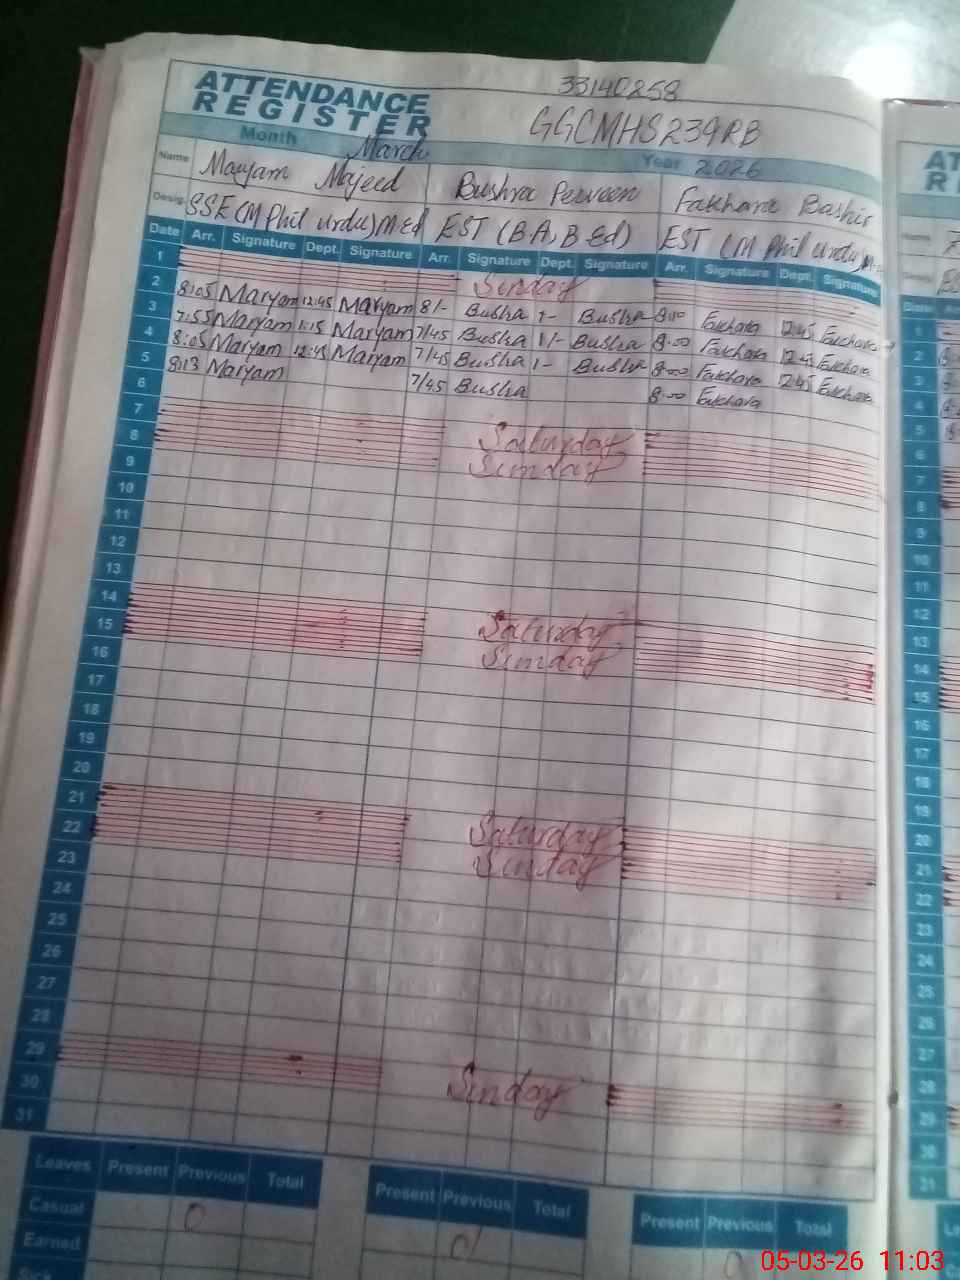 33140258
ATTENDANCE
REGISTER
GGCMHS239RB
Month March Year 2026
Name Maryam Majeed Bushra Perveen Fakhara Bashir
Desig. SSE(M Phil urdu)M.Ed EST (BA, B Ed) EST (M Phil urdu)
Date Arr. Signature Dept. Signature Arr. Signature Dept. Signature Arr. Signature Dept. Signature
1 Sunday
2 8:05 Maryam 12:45 Maryam 8/- Bushra 1- Bushra 8:10 Fakhara 12:45 Fakhara
3 7:55 Maryam 1:15 Maryam 7/45 Bushra 1/- Bushra 8:00 Fakhara 12:45 Fakhara
4 8:05 Maryam 12:45 Maryam 7/45 Bushra 1- Bushra 8:00 Fakhara 12:45 Fakhara
5 8:13 Maryam 7/45 Bushra 8:00 Fakhara
6
7 Saturday
8 Sunday
9
10
11
12
13
14 Saturday
15 Sunday
16
17
18
19
20
21 Saturday
22 Sunday
23
24
25
26
27
28
29 Sunday
30
31
Leaves Present Previous Total Present Previous Total Present Previous Total
Casual 0 0 0
Earned
Sick
AT
R
Date
1
2
3
4
5
6
7
8
9
10
11
12
13
14
15
16
17
18
19
20
21
22
23
24
25
26
27
28
29
30
31
05-03-26 11:03